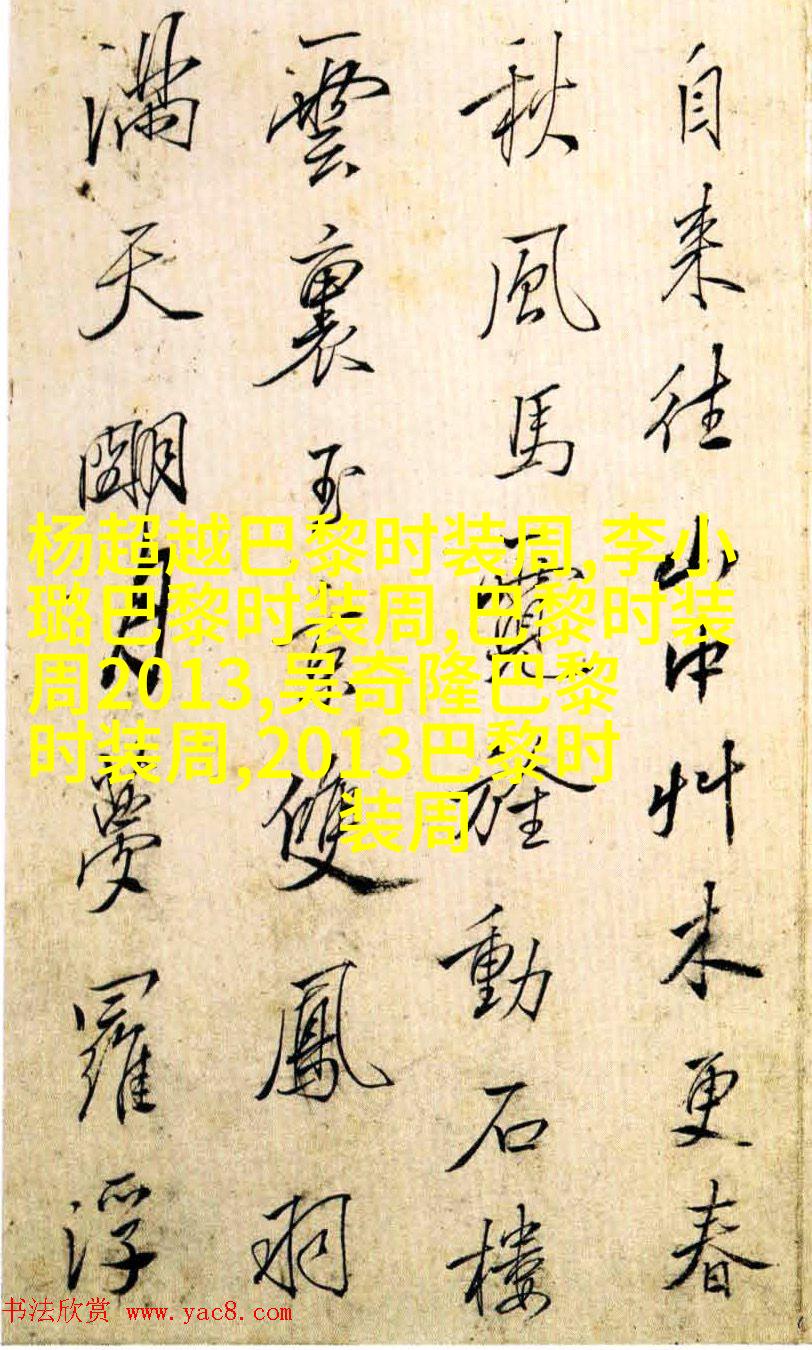 自来往山中艸木更春
秋風馬靈旌動石樓
雲裏玉京雙鳳羽
滿天朙月夢羅浮
杨超越巴黎时装周,李小
璐巴黎时装周,巴黎时装
周2013,吴奇隆巴黎
时装周,2013巴黎时
装周
书法欣赏 www.yac8.com